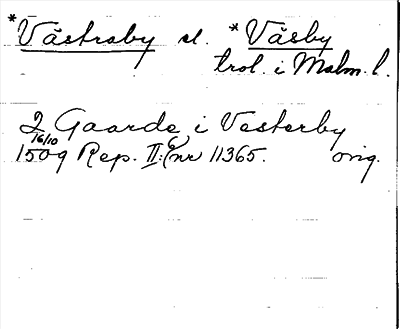 *Västraby el. *Väsby
trol. i Malm. l.
2 Gaarde i Vesterby
16/10
1509 Rep. II:1 nr 11365. orig.